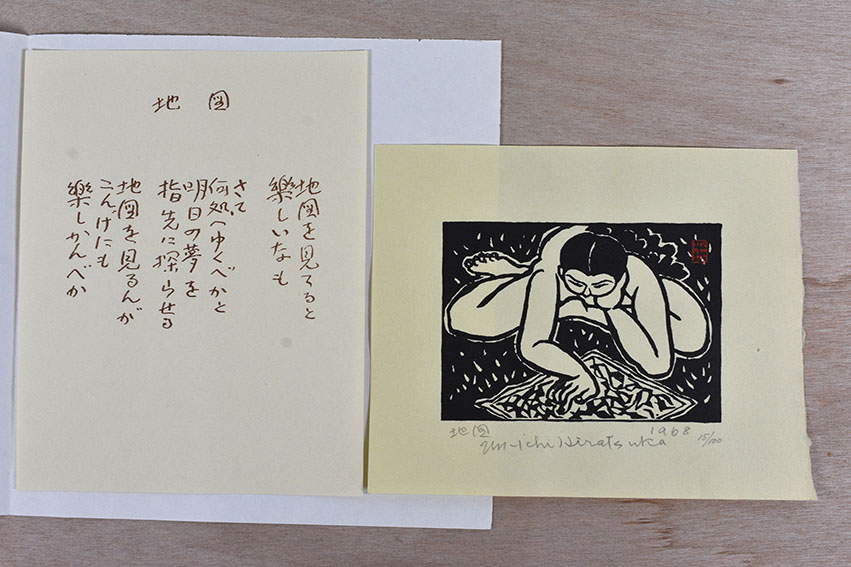 地図
地図を見てると
樂しいなも
さて
何処へゆくべかと
明日の夢を
指先に探らせる
地図を見るんが
こんげにも
樂しかんべか
地図
1968 15/100
Un-ichi Hiratsuka